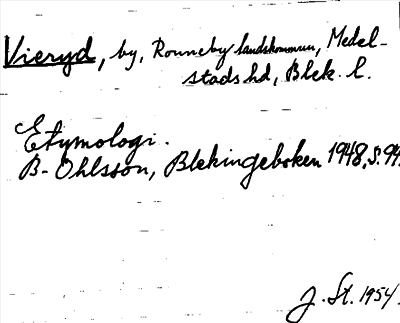 Vieryd, by, Ronneby landskommun, Medel-
stads hd, Blek. l.
Etymologi.
B. Ohlsson, Blekingeboken 1948, s. 99.
J. St. 1954.